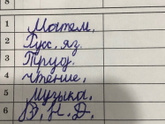 8
1 Матем.
2 Русс. яз.
3 Труд.
4 чтение,
5 музыка,
6